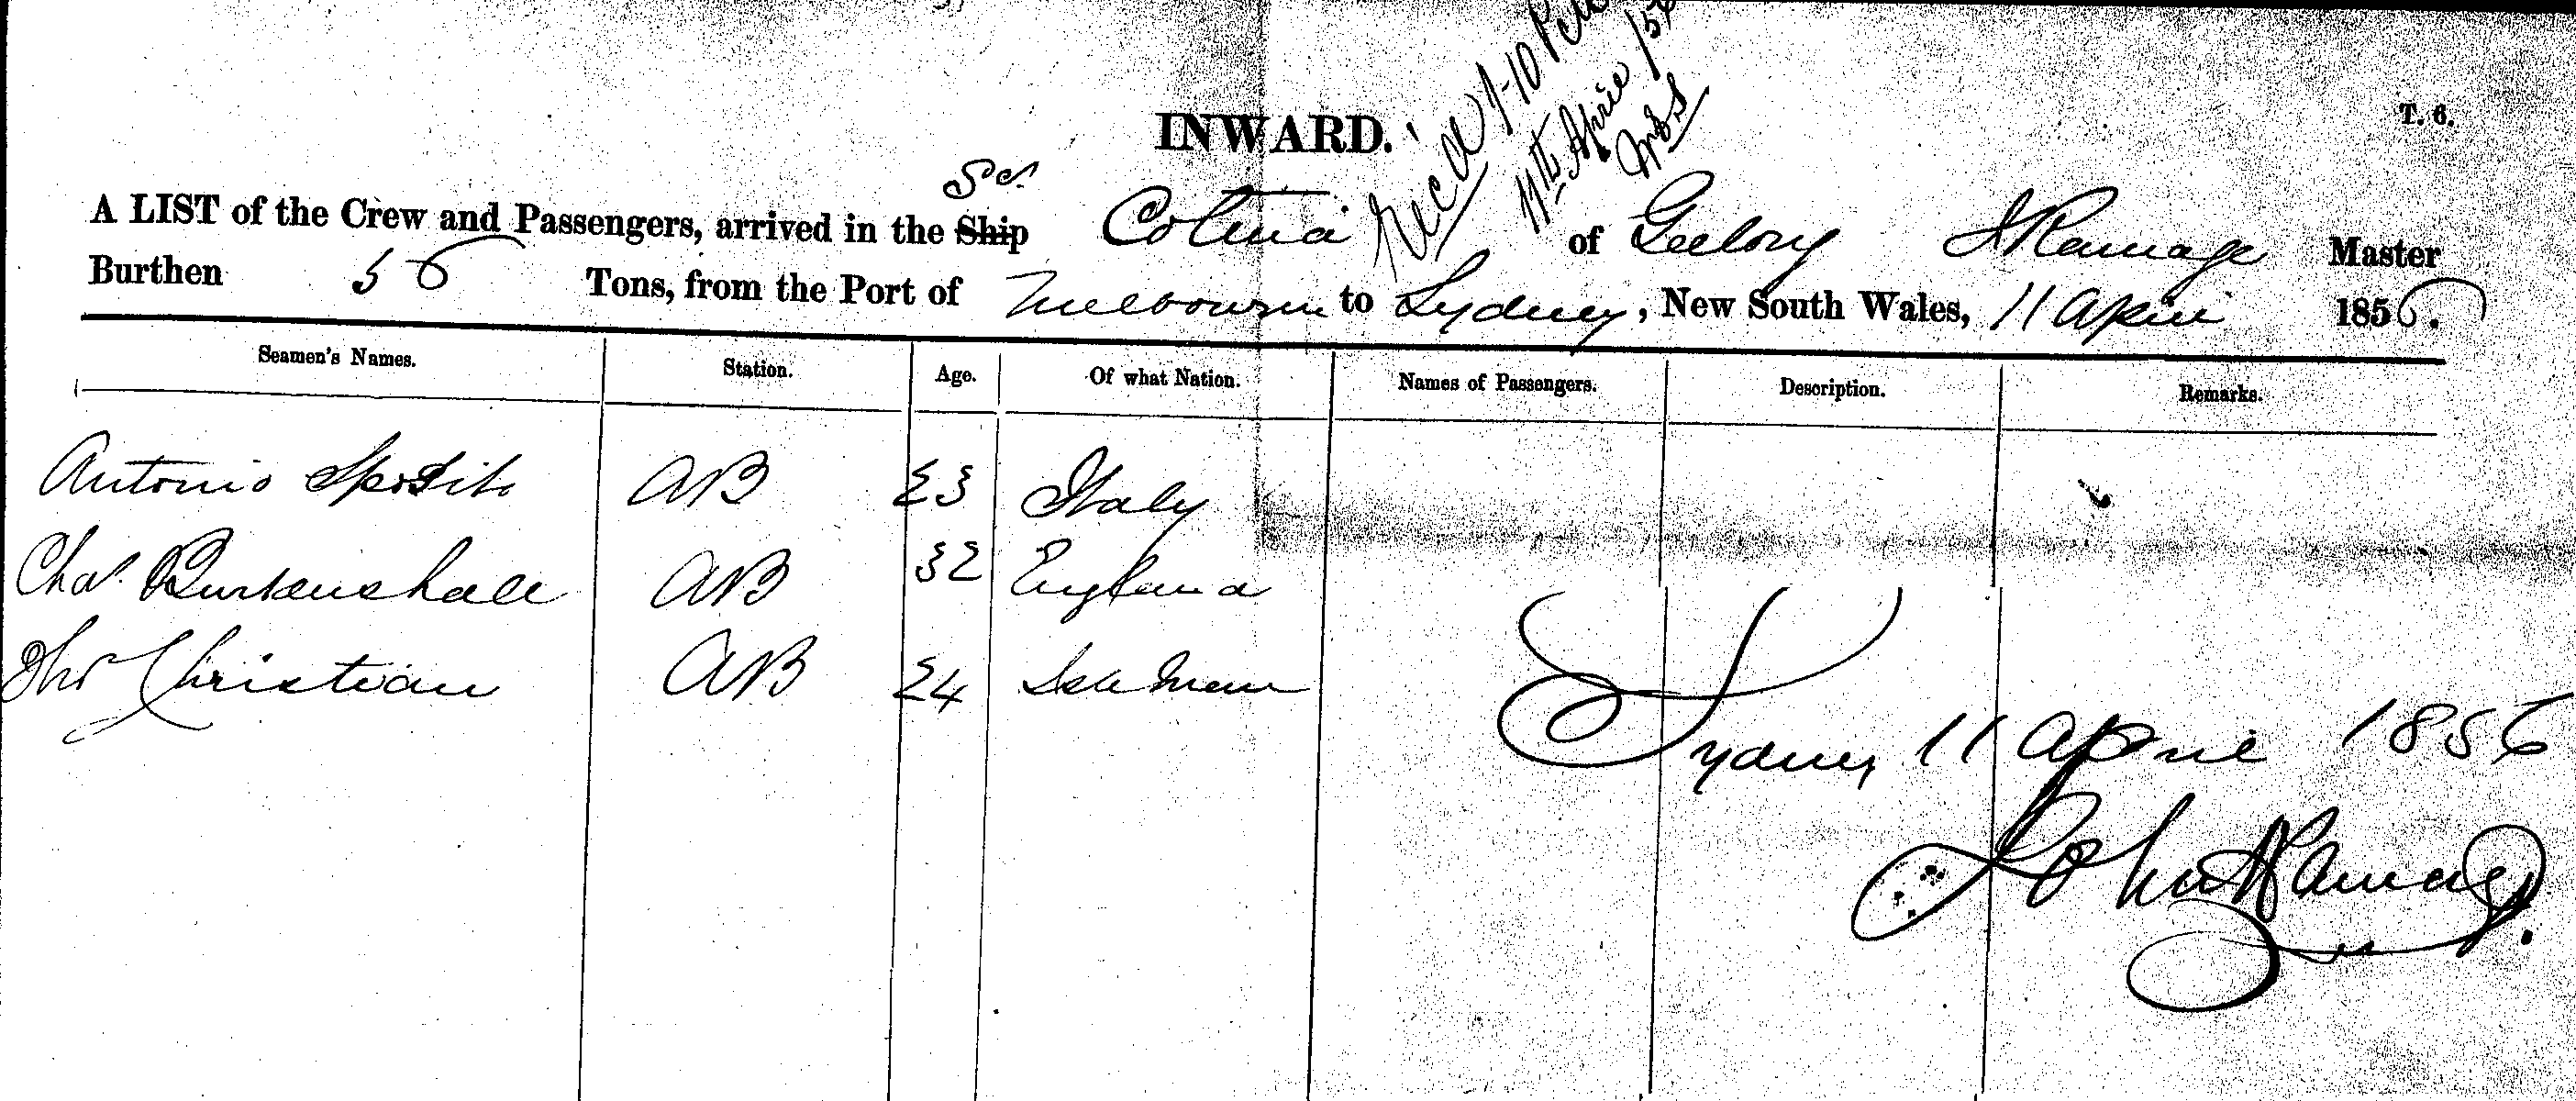 INWARD.
T. 6.
Recd 1-10 P.M.
11th April /56
A LIST of the Crew and Passengers, arrived in the Ship Sr. Cotina of Geelong J Ramage Master
Burthen 56 Tons, from the Port of Melbourne to Sydney, New South Wales, 11 April 1856.
Seamen's Names. Station. Age. Of what Nation. Names of Passengers. Description. Remarks.
Antonio Sposito AB 23 Italy
Chas. Burtenshall AB 32 England
Christian AB 24 Isle Man
Sydney 11 April 1856
John Ramage